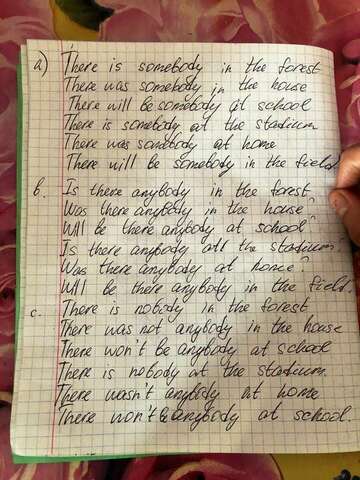 a) There is somebody in the forest
There was somebody in the house
There will be somebody at school
There is somebody at the stadium
There was somebody at home
There will be somebody in the field
b. Is there anybody in the forest?
Was there anybody in the house?
Will be there anybody at school?
Is there anybody att the stadium?
Was there anybody at home?
Will be there anybody in the field.
c. There is nobody in the forest
There was not anybody in the house
There won't be anybody at school
There is nobody at the stadium.
There wasn't anybody at home
There won't be anybody at school.